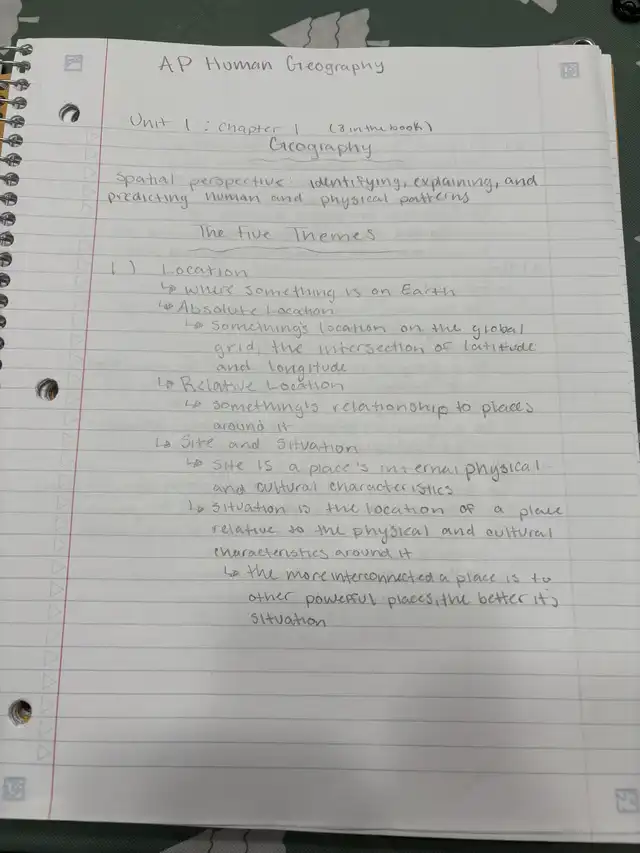 AP Human Geography
Unit 1 : Chapter 1 (3 in the book)
Geography
Spatial perspective: identifying, explaining, and
predicting human and physical patterns
The Five Themes
1) Location
↳ where something is on Earth
↳ Absolute Location
↳ something's location on the global
grid, the intersection of latitude
and longitude
↳ Relative Location
↳ something's relationship to places
around it
↳ Site and Situation
↳ site is a place's internal physical
and cultural characteristics
↳ situation is the location of a place
relative to the physical and cultural
characteristics around it
↳ the more interconnected a place is to
other powerful places, the better its
situation